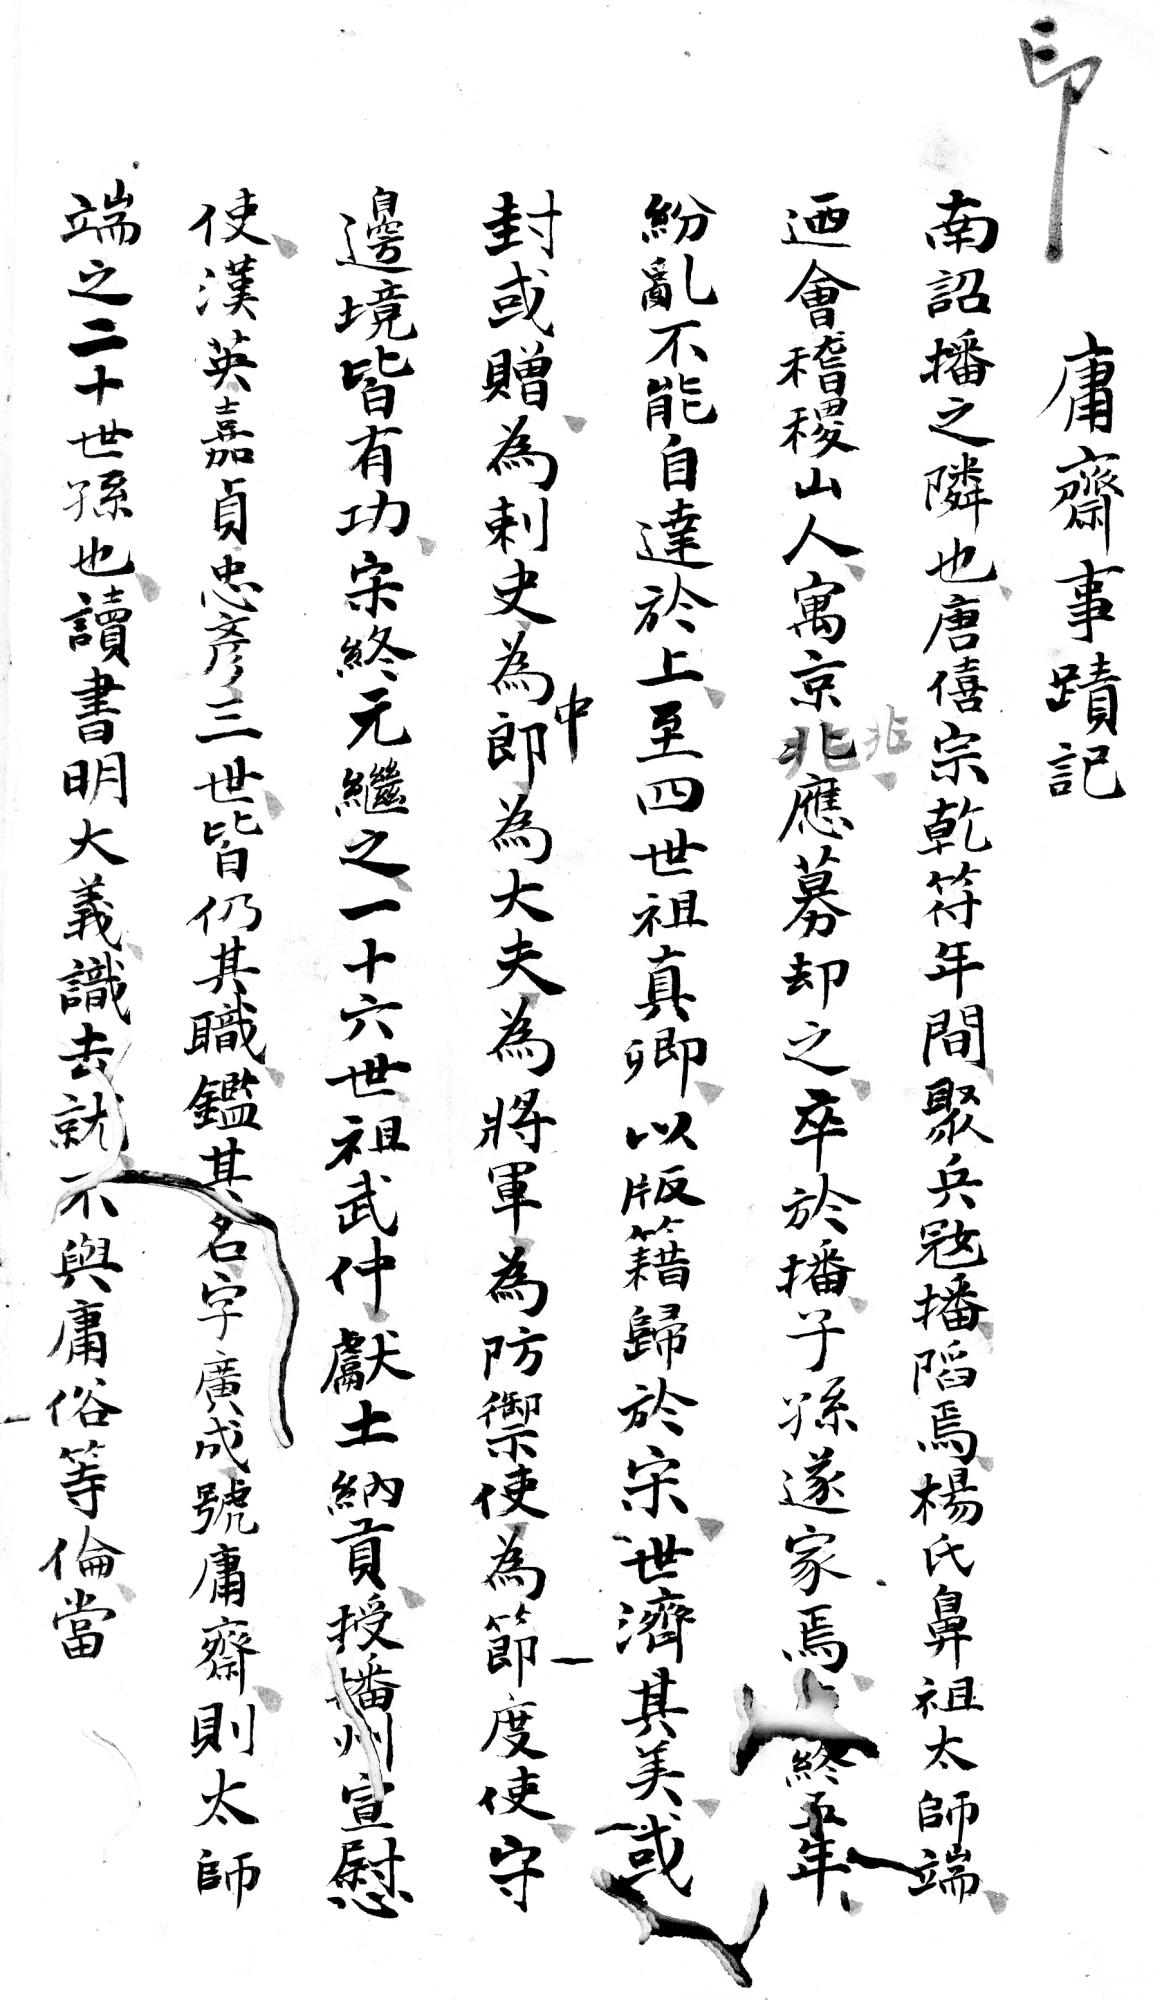 印
庸齋事蹟記
南詔播之隣也唐僖宗乾符年間聚兵宼播陷焉楊氏鼻祖太師端
迺會稽稷山人寓京兆兆應募却之卒於播子孫遂家焉終五年
紛亂不能自達於上至四世祖真卿以版籍歸於宋世濟其美或
封或贈為刺史為郎中為大夫為將軍為防禦使為節度使守
邊境皆有功宋終元繼之一十六世祖武仲獻土納貢授播州宣慰
使漢英嘉貞忠彥三世皆仍其職鑑其名字廣成號庸齋則太師
端之二十世孫也讀書明大義識去就不與庸俗等倫當